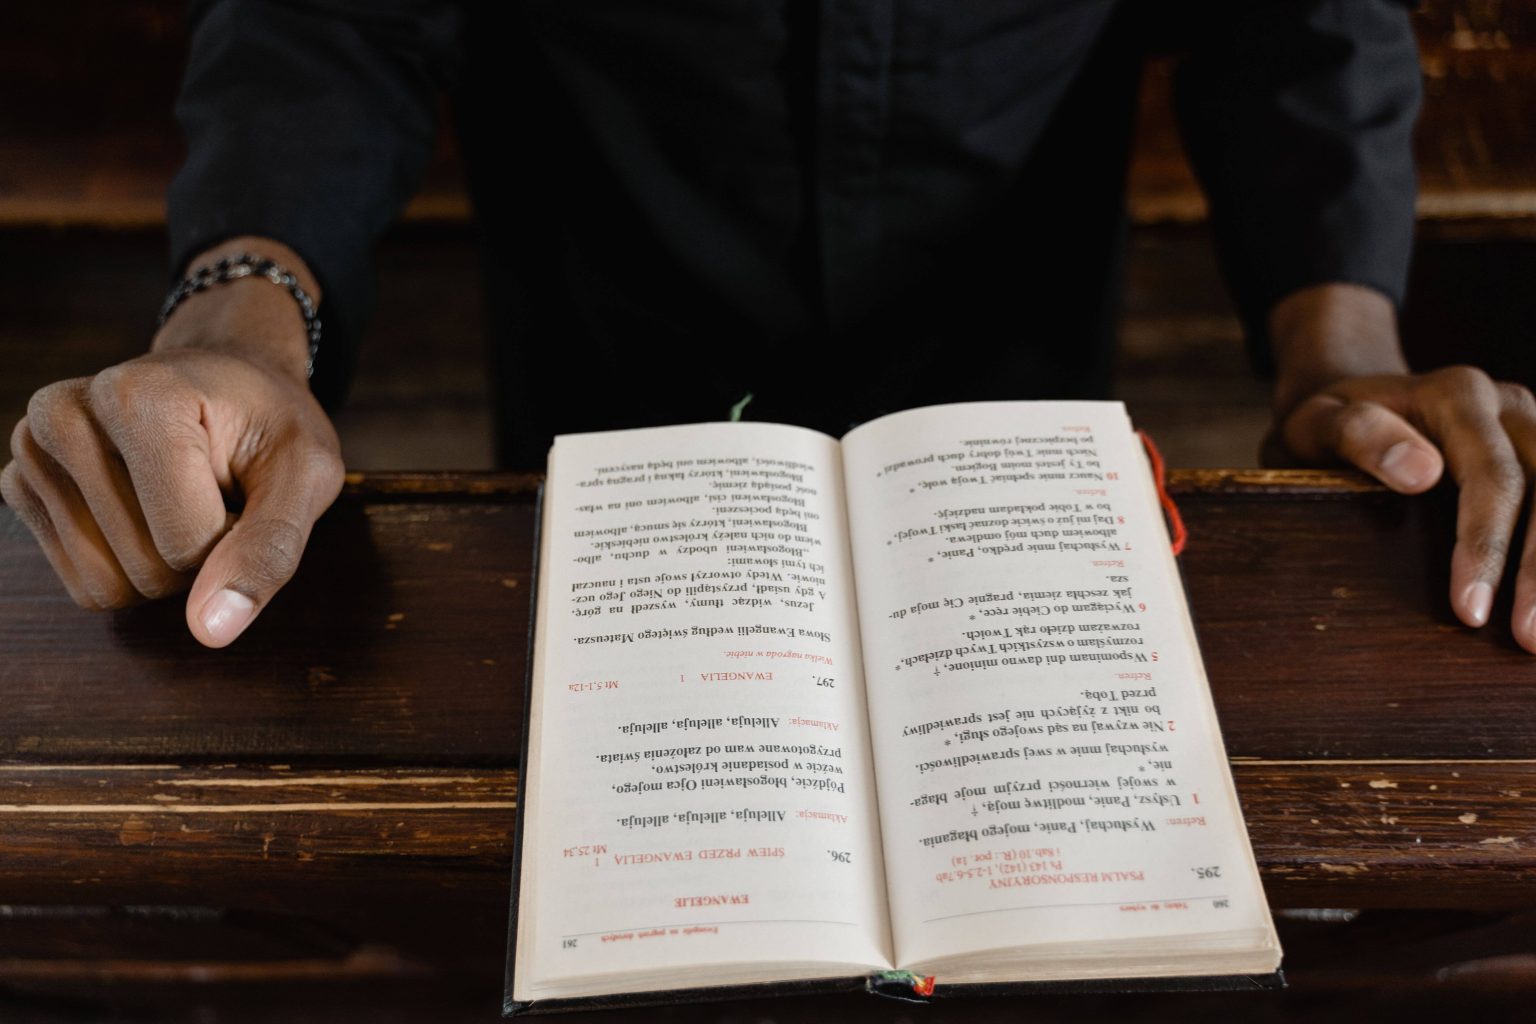 260 Teksty do wyboru
295. PSALM RESPONSORYJNY
Ps 143 (142), 1-2.5-6.7ab
i 8ab.10 (R.: por. 1a)
Refren: Wysłuchaj, Panie, mojego błagania.
1 Usłysz, Panie, modlitwę moją, †
w swojej wierności przyjm moje błaga-
nie, *
wysłuchaj mnie w swej sprawiedliwości.
2 Nie wzywaj na sąd swojego sługi, *
bo nikt z żyjących nie jest sprawiedliwy
przed Tobą.
Refren.
5 Wspominam dni dawno minione, †
rozmyślam o wszystkich Twych dziełach, *
rozważam dzieło rąk Twoich.
6 Wyciągam do Ciebie ręce, *
jak zeschła ziemia, pragnie Cię moja du-
sza.
Refren.
7 Wysłuchaj mnie prędko, Panie, *
albowiem duch mój omdlewa.
8 Daj mi już o świcie doznać łaski Twojej, *
bo w Tobie pokładam nadzieję.
Refren.
10 Naucz mnie spełniać Twoją wolę, *
bo Ty jesteś moim Bogiem.
Niech mnie Twój dobry duch prowadzi *
po bezpiecznej równinie.
Refren.
Ewangelie na pogrzeb dorosłych 261
EWANGELIE
296. ŚPIEW PRZED EWANGELIĄ 1
Mt 25,34
Aklamacja: Alleluja, alleluja, alleluja.
Pójdźcie, błogosławieni Ojca mojego,
weźcie w posiadanie królestwo,
przygotowane wam od założenia świata.
Aklamacja: Alleluja, alleluja, alleluja.
297. EWANGELIA 1 Mt 5,1-12a
Wielka nagroda w niebie.
Słowa Ewangelii według świętego Mateusza.
Jezus, widząc tłumy, wyszedł na górę.
A gdy usiadł, przystąpili do Niego Jego ucz-
niowie. Wtedy otworzył swoje usta i nauczał
ich tymi słowami:
„Błogosławieni ubodzy w duchu, albo-
wiem do nich należy królestwo niebieskie.
Błogosławieni, którzy się smucą, albowiem
oni będą pocieszeni.
Błogosławieni cisi, albowiem oni na włas-
ność posiądą ziemię.
Błogosławieni, którzy łakną i pragną spra-
wiedliwości, albowiem oni będą nasyceni.